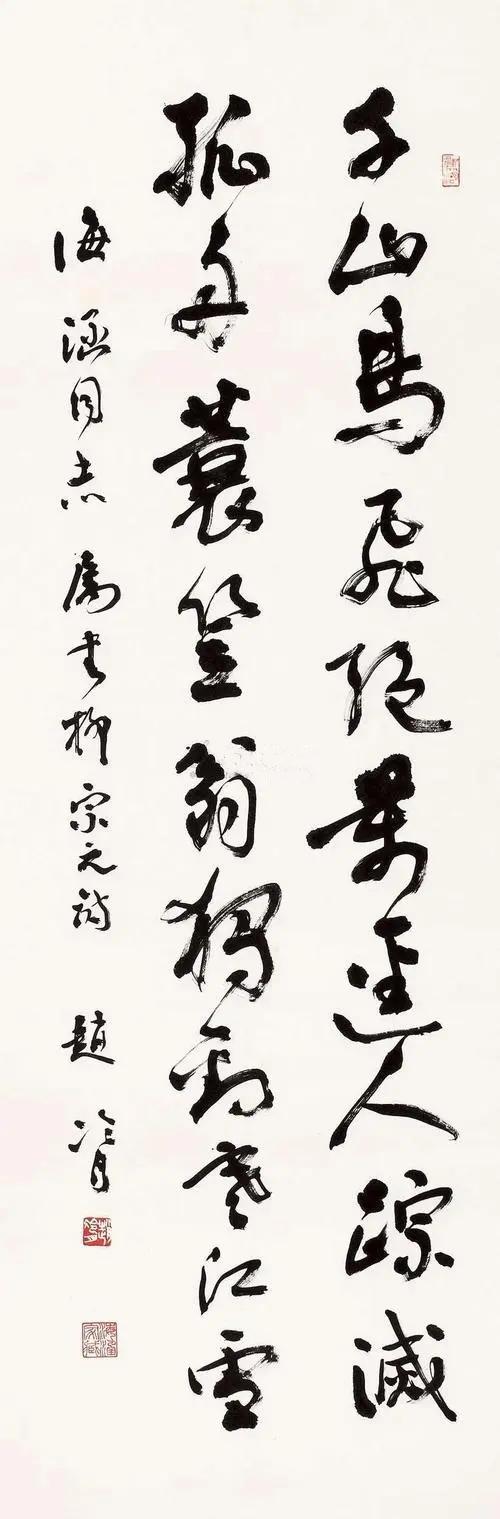 千山鳥飛絕萬逕人踪滅
孤舟蓑笠翁獨釣寒江雪
海涵同志属書柳宗元詩 趙冷月